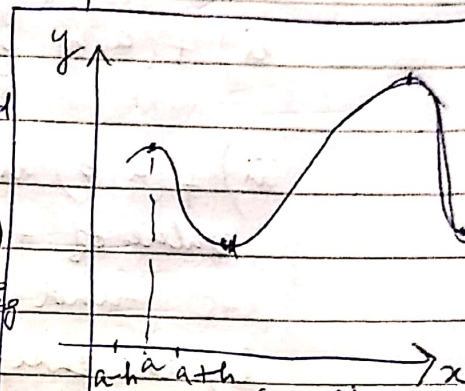 y
a-h a a+h x